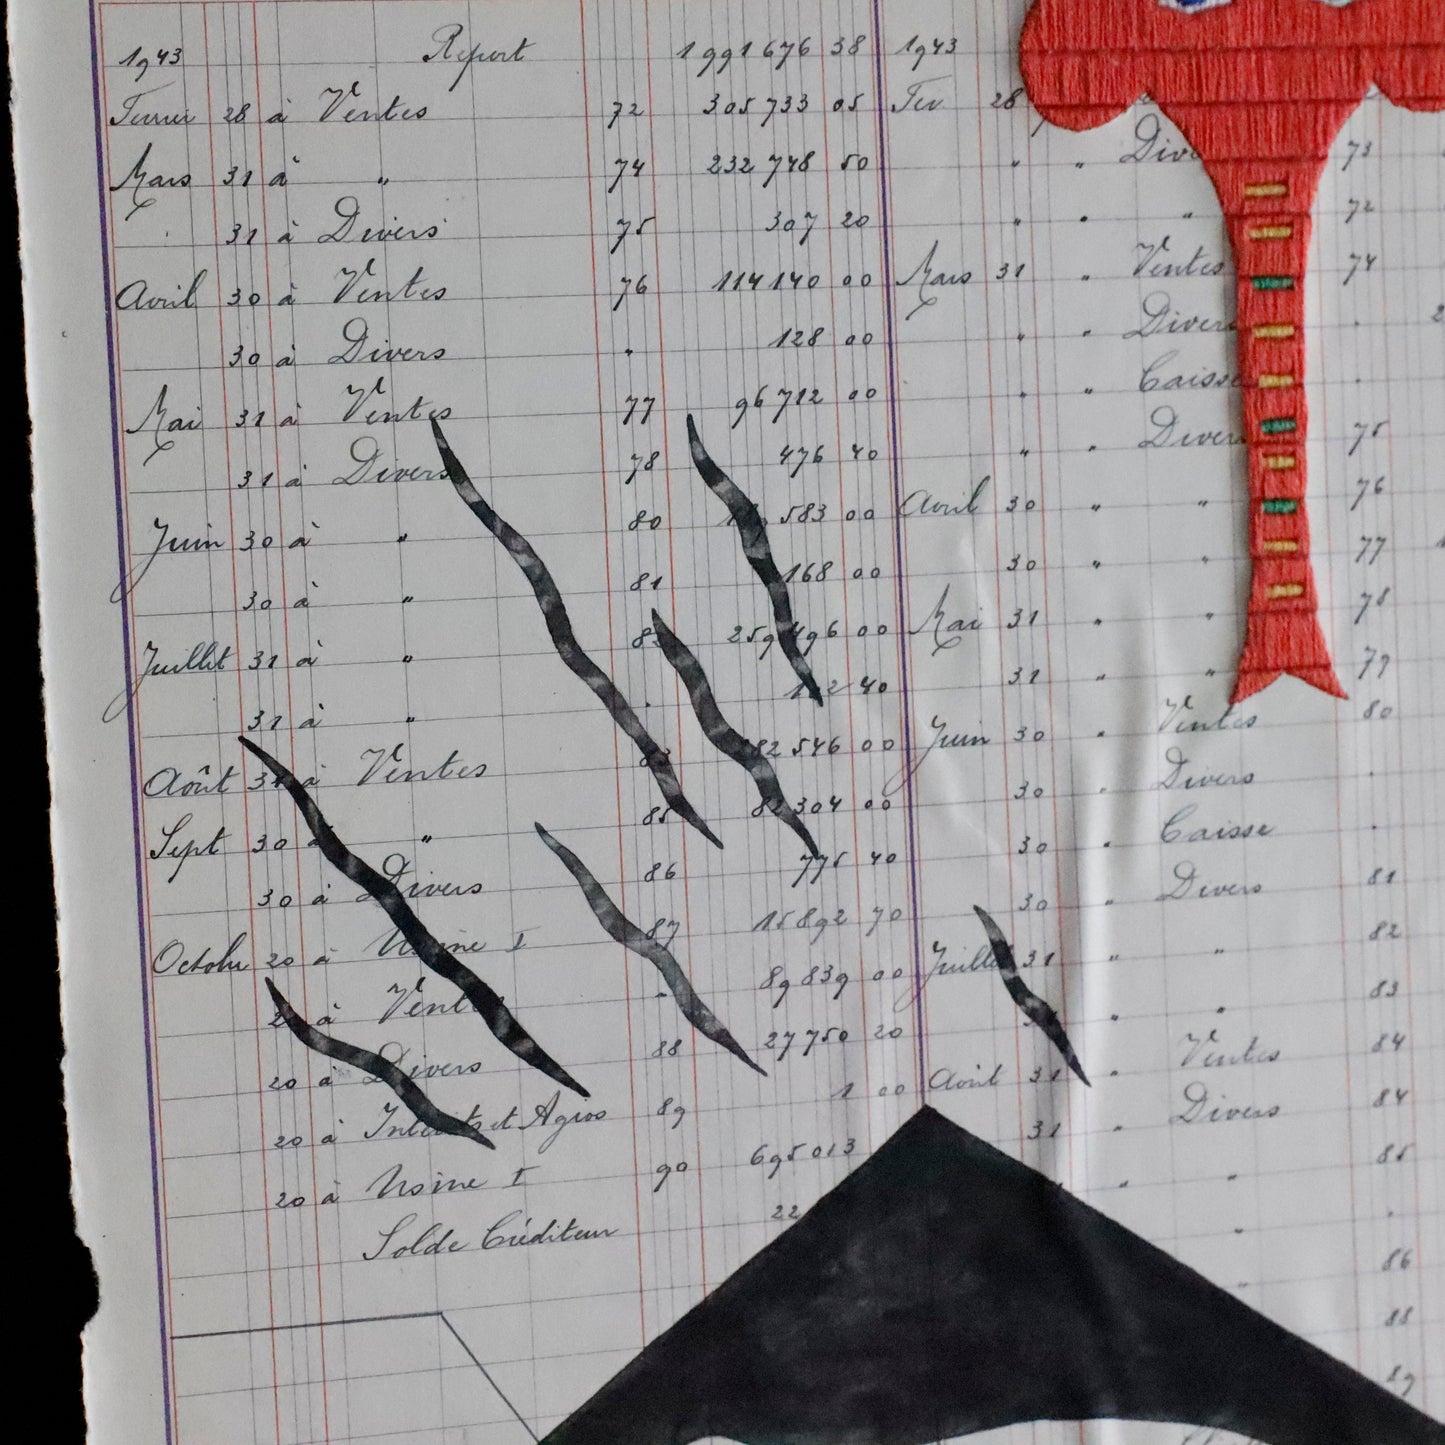 1943 Report 1 991 676 38
Fevrier 28 à Ventes 72 305 733 05
Mars 31 à " 74 232 748 50
31 à Divers 75 307 20
Avril 30 à Ventes 76 114 140 00
30 à Divers " 128 00
Mai 31 à Ventes 77 96 712 00
31 à Divers 78 476 40
Juin 30 à " 80 583 00
30 à " 81 168 00
Juillet 31 à " 00
31 à " 40
Août à Ventes 546 00
Sept 30 " 85 304 00
30 à Divers 86 775 40
Octobre 20 à Usine I 87 15 892 70
à Ventes " 89 839 00
20 à Divers 88 27 750 20
20 à Intérêts et Agios 89 1 00
20 à Usine I 90 695 013
Solde Créditeur 22
1943
Fev 28
" " 73
" " " 72
Mars 31 " Ventes 74
" " Divers
" " Caisse
" " Divers 75
Avril 30 " " 76
30 " " 77
Mai 31 " " 78
31 " " 79
Juin 30 " Ventes 80
30 " Divers
30 " Caisse
30 " Divers 81
Juillet 31 " " 82
" " 83
Août 31 " Ventes 84
31 " Divers 84
" " 85
"
" 86
88
89